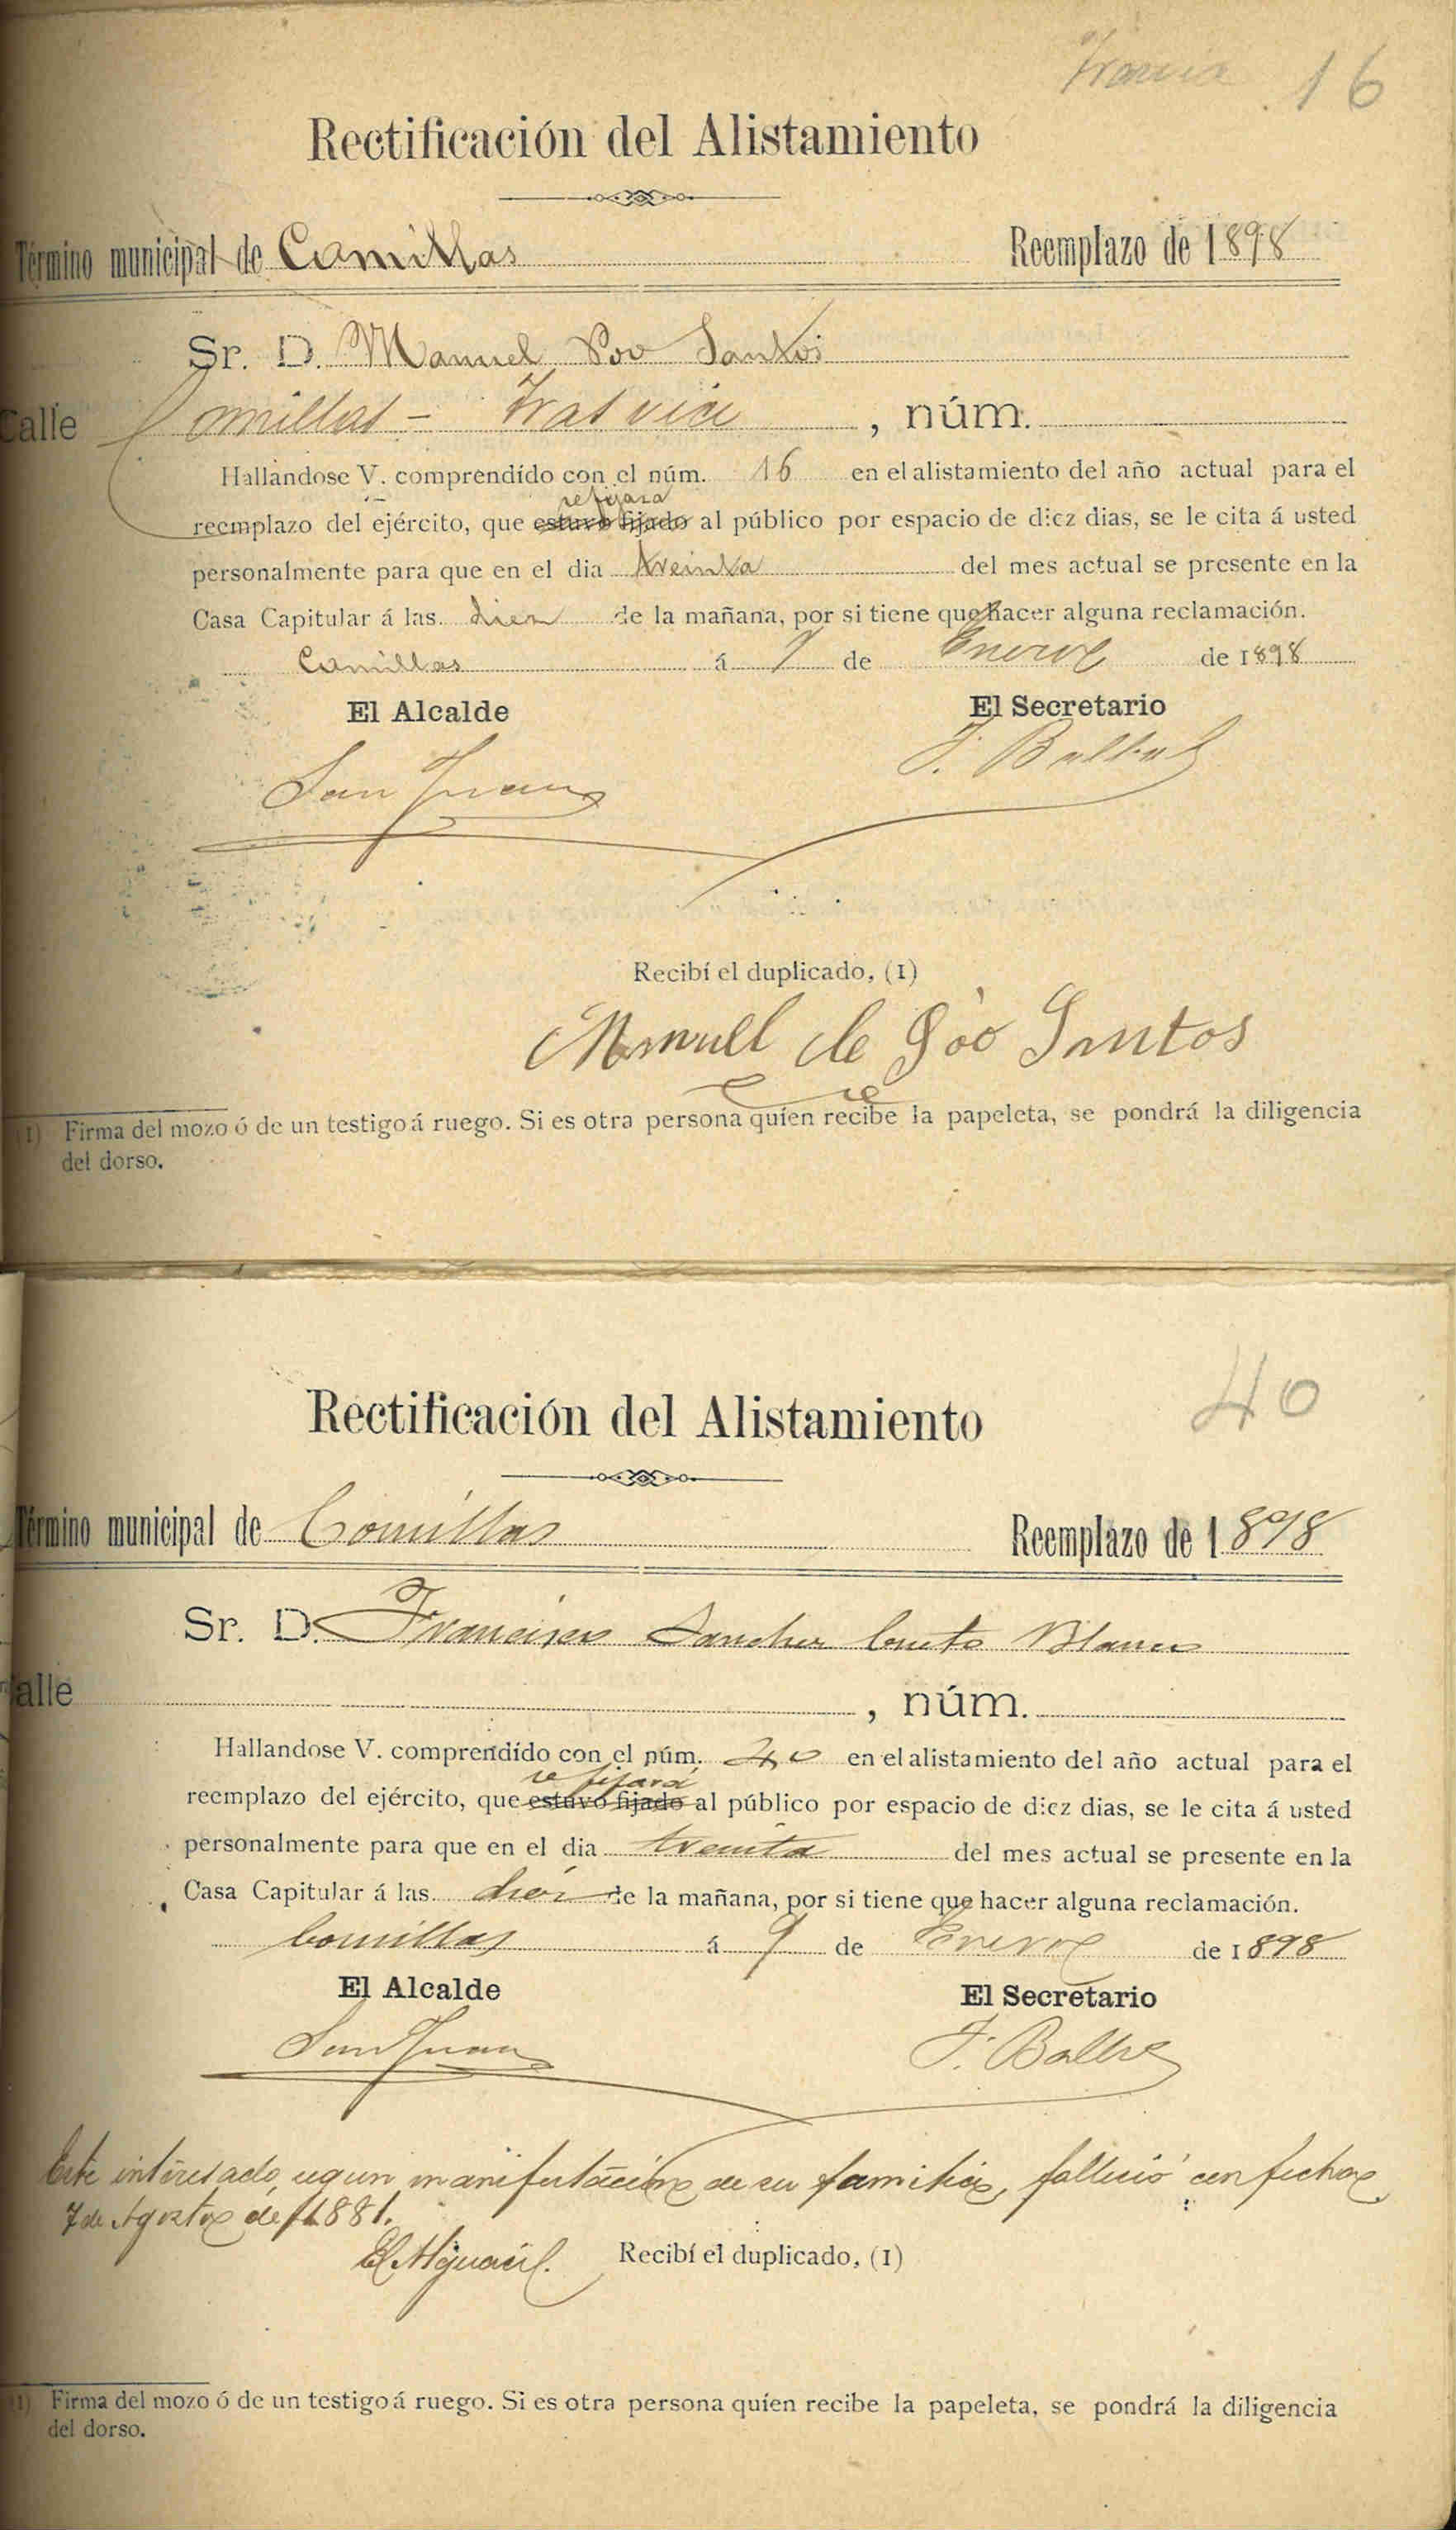 16
Rectificación del Alistamiento
Término municipal de Comillas Reemplazo de 1898
Sr. D. Manuel Poo Santos
Calle Comillas - Tras via, núm.
Hallandose V. comprendído con el núm. 16 en el alistamiento del año actual para el
se fijara
reemplazo del ejército, que estuvo fijado al público por espacio de diez dias, se le cita á usted
personalmente para que en el dia treinta del mes actual se presente en la
Casa Capitular á las diez de la mañana, por si tiene que hacer alguna reclamación.
Comillas á 9 de Enero de 1898
El Alcalde El Secretario
San Juan
Recibí el duplicado, (1)
Manuel de Póo Santos
(1) Firma del mozo ó de un testigo á ruego. Si es otra persona quíen recibe la papeleta, se pondrá la diligencia
del dorso.
40
Rectificación del Alistamiento
Término municipal de Comillas Reemplazo de 1898
Sr. D. Francisco Sanchez Cueto Blanco
Calle , núm.
Hallandose V. comprendído con el núm. 40 en el alistamiento del año actual para el
se fijará
reemplazo del ejército, que estuvo fijado al público por espacio de diez dias, se le cita á usted
personalmente para que en el dia treinta del mes actual se presente en la
Casa Capitular á las diez de la mañana, por si tiene que hacer alguna reclamación.
Comillas á 9 de Enero de 1898
El Alcalde El Secretario
San Juan
Este interesado, segun manifestación de su familia, falleció con fecha
7 de Agosto de 1881.
El Alguacil. Recibí el duplicado, (1)
(1) Firma del mozo ó de un testigo á ruego. Si es otra persona quíen recibe la papeleta, se pondrá la diligencia
del dorso.